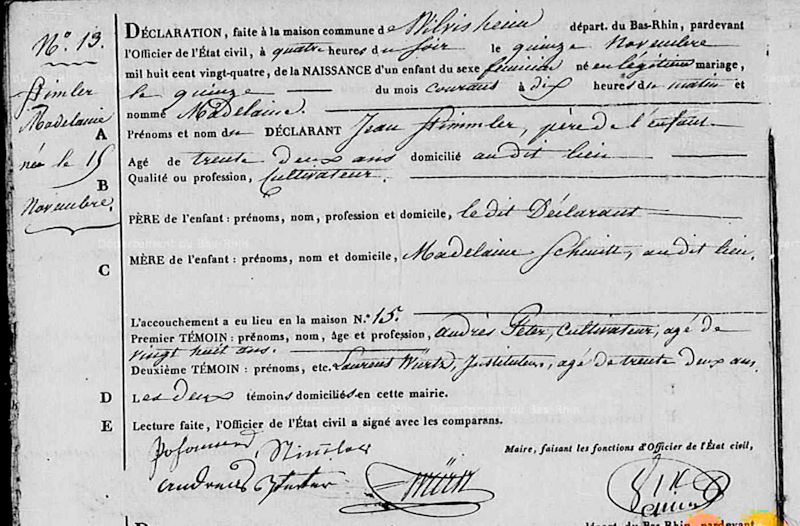 N.º 13.
Stimler
Madelaine
née le 15
Novembre.
A
B
C
D
E
DÉCLARATION, faite à la maison commune de Wilvisheim départ. du Bas-Rhin, pardevant
l'Officier de l'État civil, à quatre heures du soir le quinze Novembre
mil huit cent vingt-quatre, de la NAISSANCE d'un enfant du sexe féminin né en légitime mariage,
le quinze du mois courant à dix heures du matin et
nommé Madelaine.
Prénoms et nom du DÉCLARANT Jean Stimmler, père de l'enfant
Agé de trente deux ans domicilié audit lieu
Qualité ou profession, Cultivateur.
PÈRE de l'enfant : prénoms, nom, profession et domicile, le dit Déclarant
MÈRE de l'enfant : prénoms, nom et domicile, Madelaine Schmitt, audit lieu.
L'accouchement a eu lieu en la maison N.º 15.
Premier TÉMOIN : prénoms, nom, âge et profession, andrés Peter, Cultivateur, agé de
vingt huit ans.
Deuxième TÉMOIN : prénoms, etc. Laurent Würtz, Instituteur, agé de trente deux ans.
Les deux témoins domiciliés en cette mairie.
Département du Bas-Rhin
Lecture faite, l'Officier de l'État civil a signé avec les comparans.
Maire, faisant les fonctions d'Officier de l'État civil,
andreas